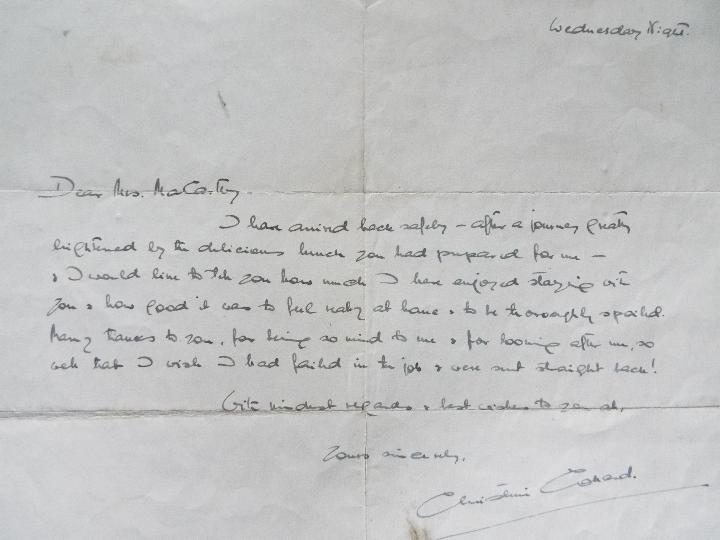 Wednesday Night.
Dear Mrs. MacCarthy.
I have arrived back safely – after a journey greatly
brightened by the delicious lunch you had prepared for me –
& I would like to tell you how much I have enjoyed staying with
you & how good it was to feel really at home & to be thoroughly spoiled.
Many thanks to you, for being so kind to me & for looking after me, so
well that I wish I had failed in the job & were sent straight back!
With kindest regards & best wishes to you all,
Yours sincerely,